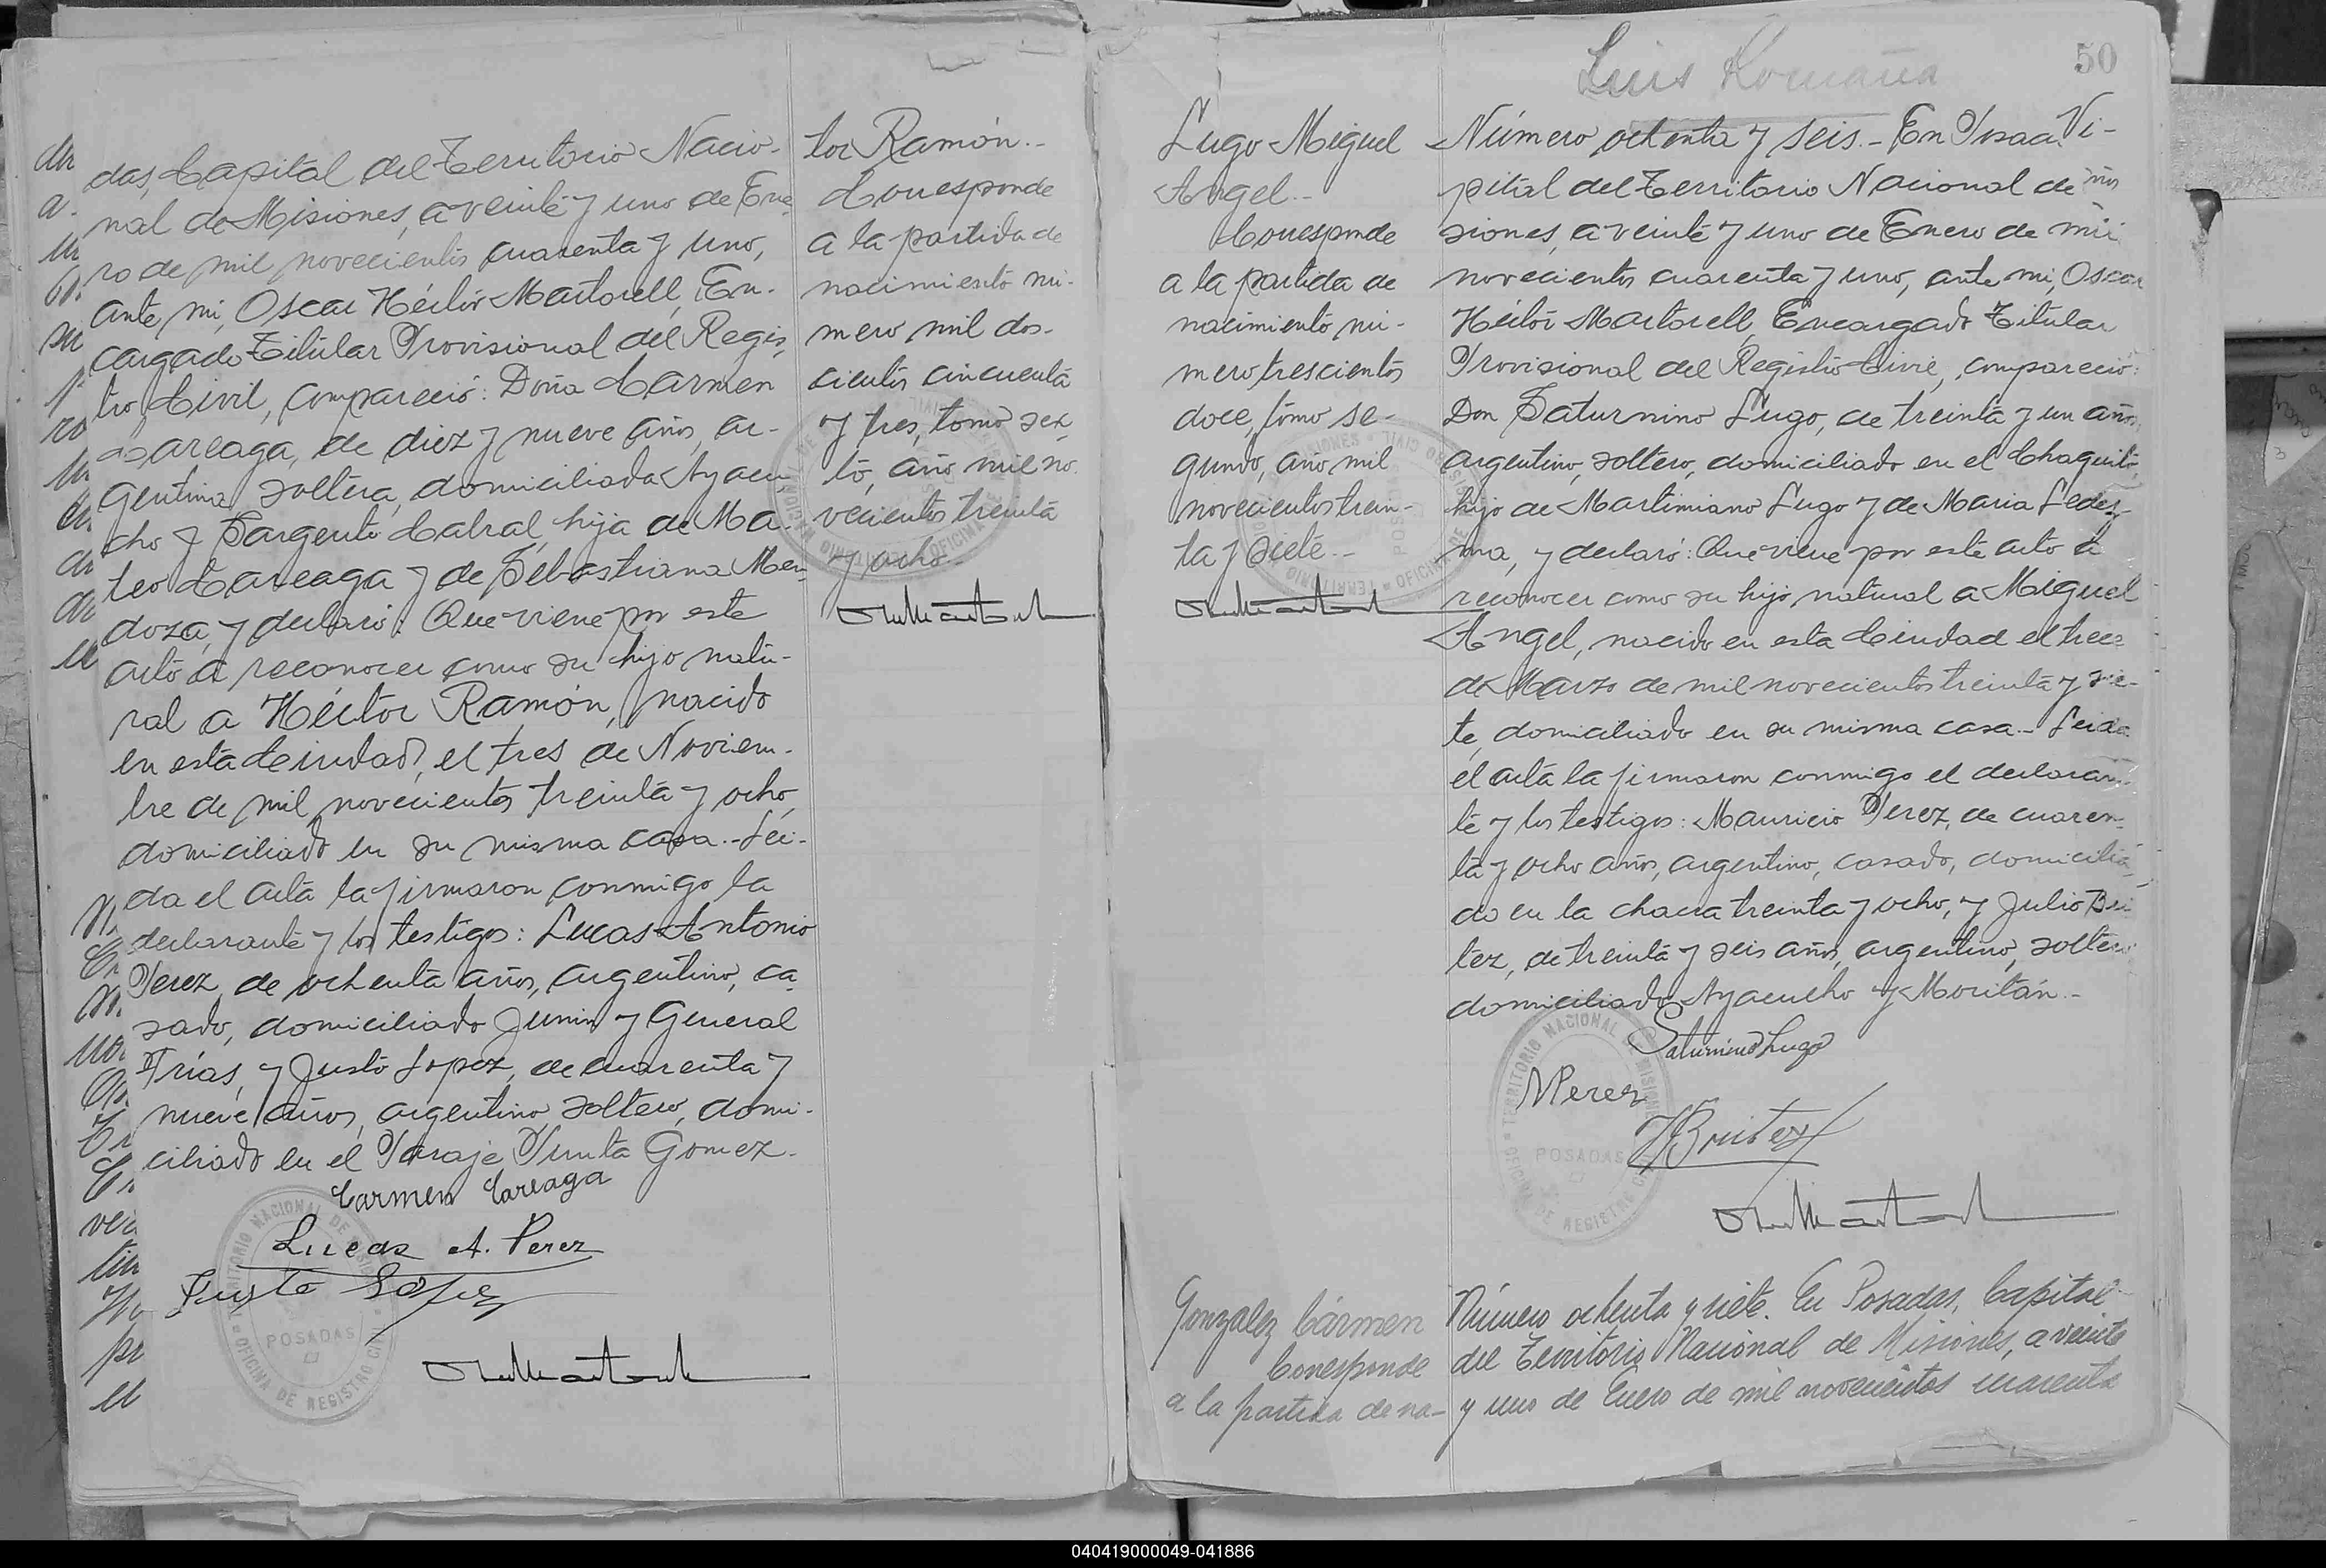 das, Capital del Territorio Nacio-
nal de Misiones, a veinte y uno de Ene
ro de mil novecientos cuarenta y uno,
ante mi, Oscar Héctor Martorell, En-
cargado Titular Provisional del Regis
tro Civil, compareció: Doña Carmen
Careaga, de diez y nueve años, ar-
gentina, soltera, domiciliada Ayacu
cho y Sargento Cabral, hija de Ma-
teo Careaga y de Sebastiana Men
doza, y declaró: Que viene por este
acto a reconocer como su hijo natu-
ral a Héctor Ramón, nacido
en esta Ciudad, el tres de Noviem-
bre de mil novecientos treinta y ocho,
domiciliado en su misma casa.- Leí-
da el acta la firmaron conmigo la
declarante y los testigos: Lucas Antonio
Perez, de ochenta años, argentino, ca
sado, domiciliado Junin y General
Frías, y Justo Lopez, de cuarenta y
nueve años, argentino, soltero, domi-
ciliado en el Paraje Punta Gomez.-
Carmen Careaga
Lucas A. Perez
Justo Lopez
TERRITORIO NACIONAL DE MISIONES
POSADAS
OFICINA DE REGISTRO CIVIL
tor Ramón.-
Corresponde
a la partida de
nacimiento nú-
mero mil dos-
cientos cincuenta
y tres, tomo sex
to, año mil no
vecientos treinta
y ocho.-
Luis Romaña
50
Lugo Miguel
Angel.-
Corresponde
a la partida de
nacimiento nú-
mero trescientos
doce, tomo se-
gundo, año mil
novecientos trein-
ta y siete.-
Número ochenta y seis.- En
pital del Territorio Nacional de
siones, a veinte y uno de Enero de mil
novecientos cuarenta y uno, ante mi, Oscar
Héctor Martorell, Encargado Titular
Provisional del Registro Civil, compareció:
Don Saturnino Lugo, de treinta y un años,
argentino, soltero, domiciliado en el Chaquito,
hijo de Martimiano Lugo y de Maria Ledes-
ma, y declaró: Que viene por este acto a
reconocer como su hijo natural a Miguel
Angel, nacido en esta Ciudad el trece
de Marzo de mil novecientos treinta y sie-
te, domiciliado en su misma casa.- Leida
el acta la firmaron conmigo el declaran-
te y los testigos: Mauricio Perez, de cuaren-
ta y ocho años, argentino, casado, domicilia
do en la chacra treinta y ocho, y Julio Bri
tez, de treinta y seis años, argentino, soltero
domiciliado Ayacucho y Moritán.-
Saturnino Lugo
MPerez
JBritez
TERRITORIO NACIONAL DE MISIONES
POSADAS
OFICINA DE REGISTRO CIVIL
Gonzalez Cármen
Corresponde
a la partida de na-
Número ochenta y siete. En Posadas, Capital
del Territorio Nacional de Misiones, a veinte
y uno de Enero de mil novecientos cuarenta
040419000049-041886